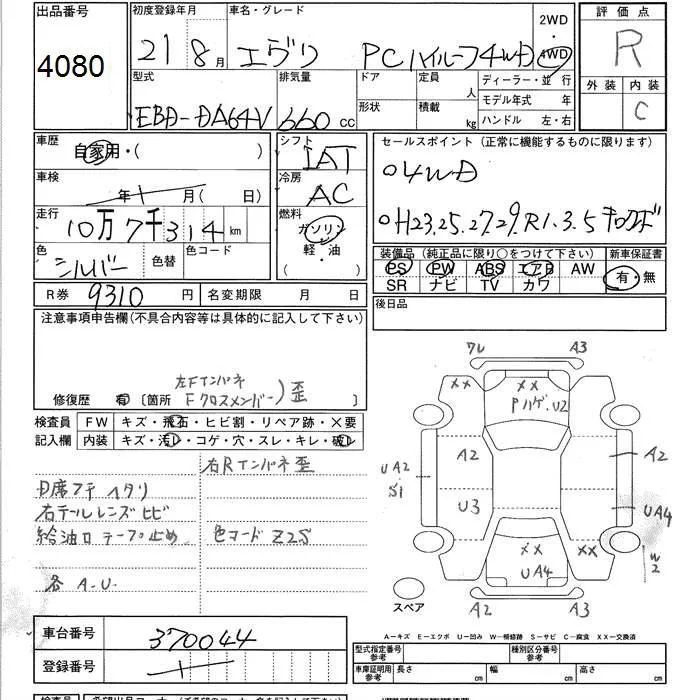 出品番号
4080
初度登録年月
21 8月
車名・グレード
エヴリ PCハイルーフ4WD
2WD
・
4WD
評価点
R
外装 内装
C
型式
EBD-DA64V
排気量
660 cc
ドア
形状
定員
人
積載
kg
ディーラー・並行
モデル年式 年
ハンドル 左・右
車歴
自家用・( )
車検
年 月( 日)
走行
10万7千314km
色
シルバー
色替
色コード
シフト
IAT
冷房
AC
燃料
ガソリン
軽・油
( ・ )
セールスポイント(正常に機能するものに限ります)
○4WD
○H23.25.27.29.R1.3.5キロクボ
装備品(純正品に限り○をつけて下さい)
PS PW ABS エアB AW
SR ナビ TV カワ
新車保証書
有・無
R券 9310 円
名変期限 月 日
後日品
注意事項申告欄(不具合内容等は具体的に記入して下さい)
左Fインパネ
修復歴 有 〔箇所 Fクロスメンバー)歪 〕
検査員
記入欄
FW キズ・飛石・ヒビ割・リペア跡・X要
内装 キズ・汚レ・コゲ・穴・スレ・キレ・破レ
右Rインパネ歪
D席フチ ヘタリ
右テールレンズヒビ
給油口テープ止め
色コードZ2S
各A.U.
7レ A3
XX XX
Pハゲ.U2
A2 A2
UA2
S1
U3 UA4
XX XX
W2
UA4
A2 A3
スペア
A-キズ E-エクボ U-凹み W-補修跡 S-サビ C-腐食 XX-交換済
車台番号
370044
登録番号
型式指定番号
参考
種別区分番号
参考
車庫証明用
参考
長さ cm
幅 cm
高さ cm